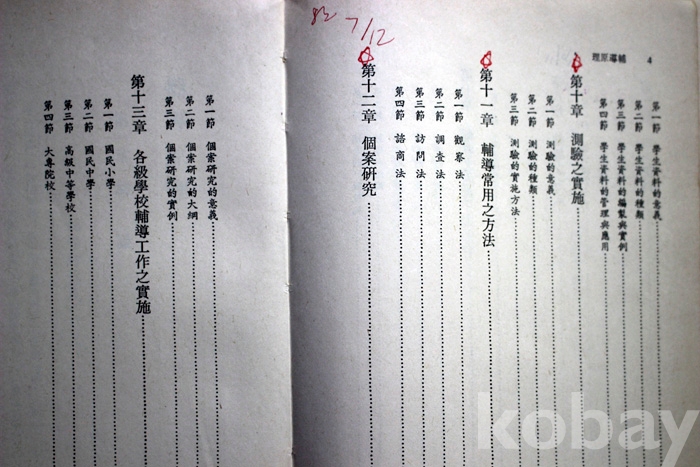 4 輔導原理
第一節 學生資料的意義
第二節 學生資料的種類
第三節 學生資料的編製與實例
第四節 學生資料的管理與應用
第十章 測驗之實施
第一節 測驗的意義
第二節 測驗的種類
第三節 測驗的實施方法
第十一章 輔導常用之方法
第一節 觀察法
第二節 調查法
第三節 訪問法
第四節 諮商法
第十二章 個案研究
7/12
第一節 個案研究的意義
第二節 個案研究的大綱
第三節 個案研究的實例
第十三章 各級學校輔導工作之實施
第一節 國民小學
第二節 國民中學
第三節 高級中等學校
第四節 大專院校
kobay